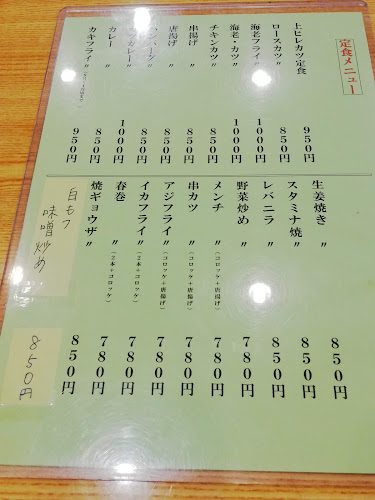 定食メニュー
上ヒレカツ定食 950円
ロースカツ〃 850円
海老フライ〃 1000円
海老・カツ〃 1000円
チキンカツ〃 850円
串揚げ〃 850円
唐揚げ〃 850円
ハンバーグ〃 850円
カツカレー〃 1000円
カレー〃 850円
カキフライ〃 950円
生姜焼き〃 850円
スタミナ焼〃 850円
レバニラ〃 850円
野菜炒め〃 780円
メンチ〃(コロッケ+唐揚げ) 780円
串カツ〃(コロッケ+唐揚げ) 780円
アジフライ〃(コロッケ+唐揚げ) 780円
イカフライ〃(2本+コロッケ) 780円
春巻〃(2本+コロッケ) 780円
焼ギョウザ〃 850円
白もつ
味噌炒め 850円